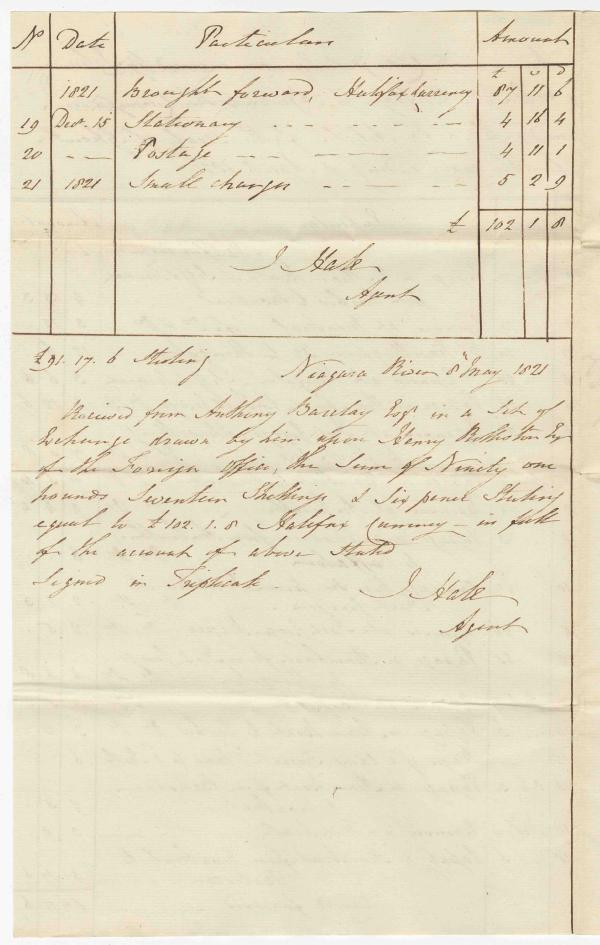 No Date Particulars Amount
£ s d
1821 Brought forward, Halifax Currency 87 11 6
19 Decr. 15 Stationary - - - - - - 4 16 4
20 - - - Postage - - - - - - 4 11 1
21 1821 Small charges - - - - - 5 2 9
£ 102 1 8
J Hale
Agent
£91. 17. 6 Sterling Niagara River 8th May 1821
Received from Anthony Barclay Esqr in a Set of
Exchange drawn by him upon Henry Esqr
of the Foreign Office, the Sum of Ninety one
pounds Seventeen Shillings & Six pence Sterling
equal to £102. 1. 8 Halifax Currency - in full
of the account of above Stated
Signed in Triplicate -
J Hale
Agent